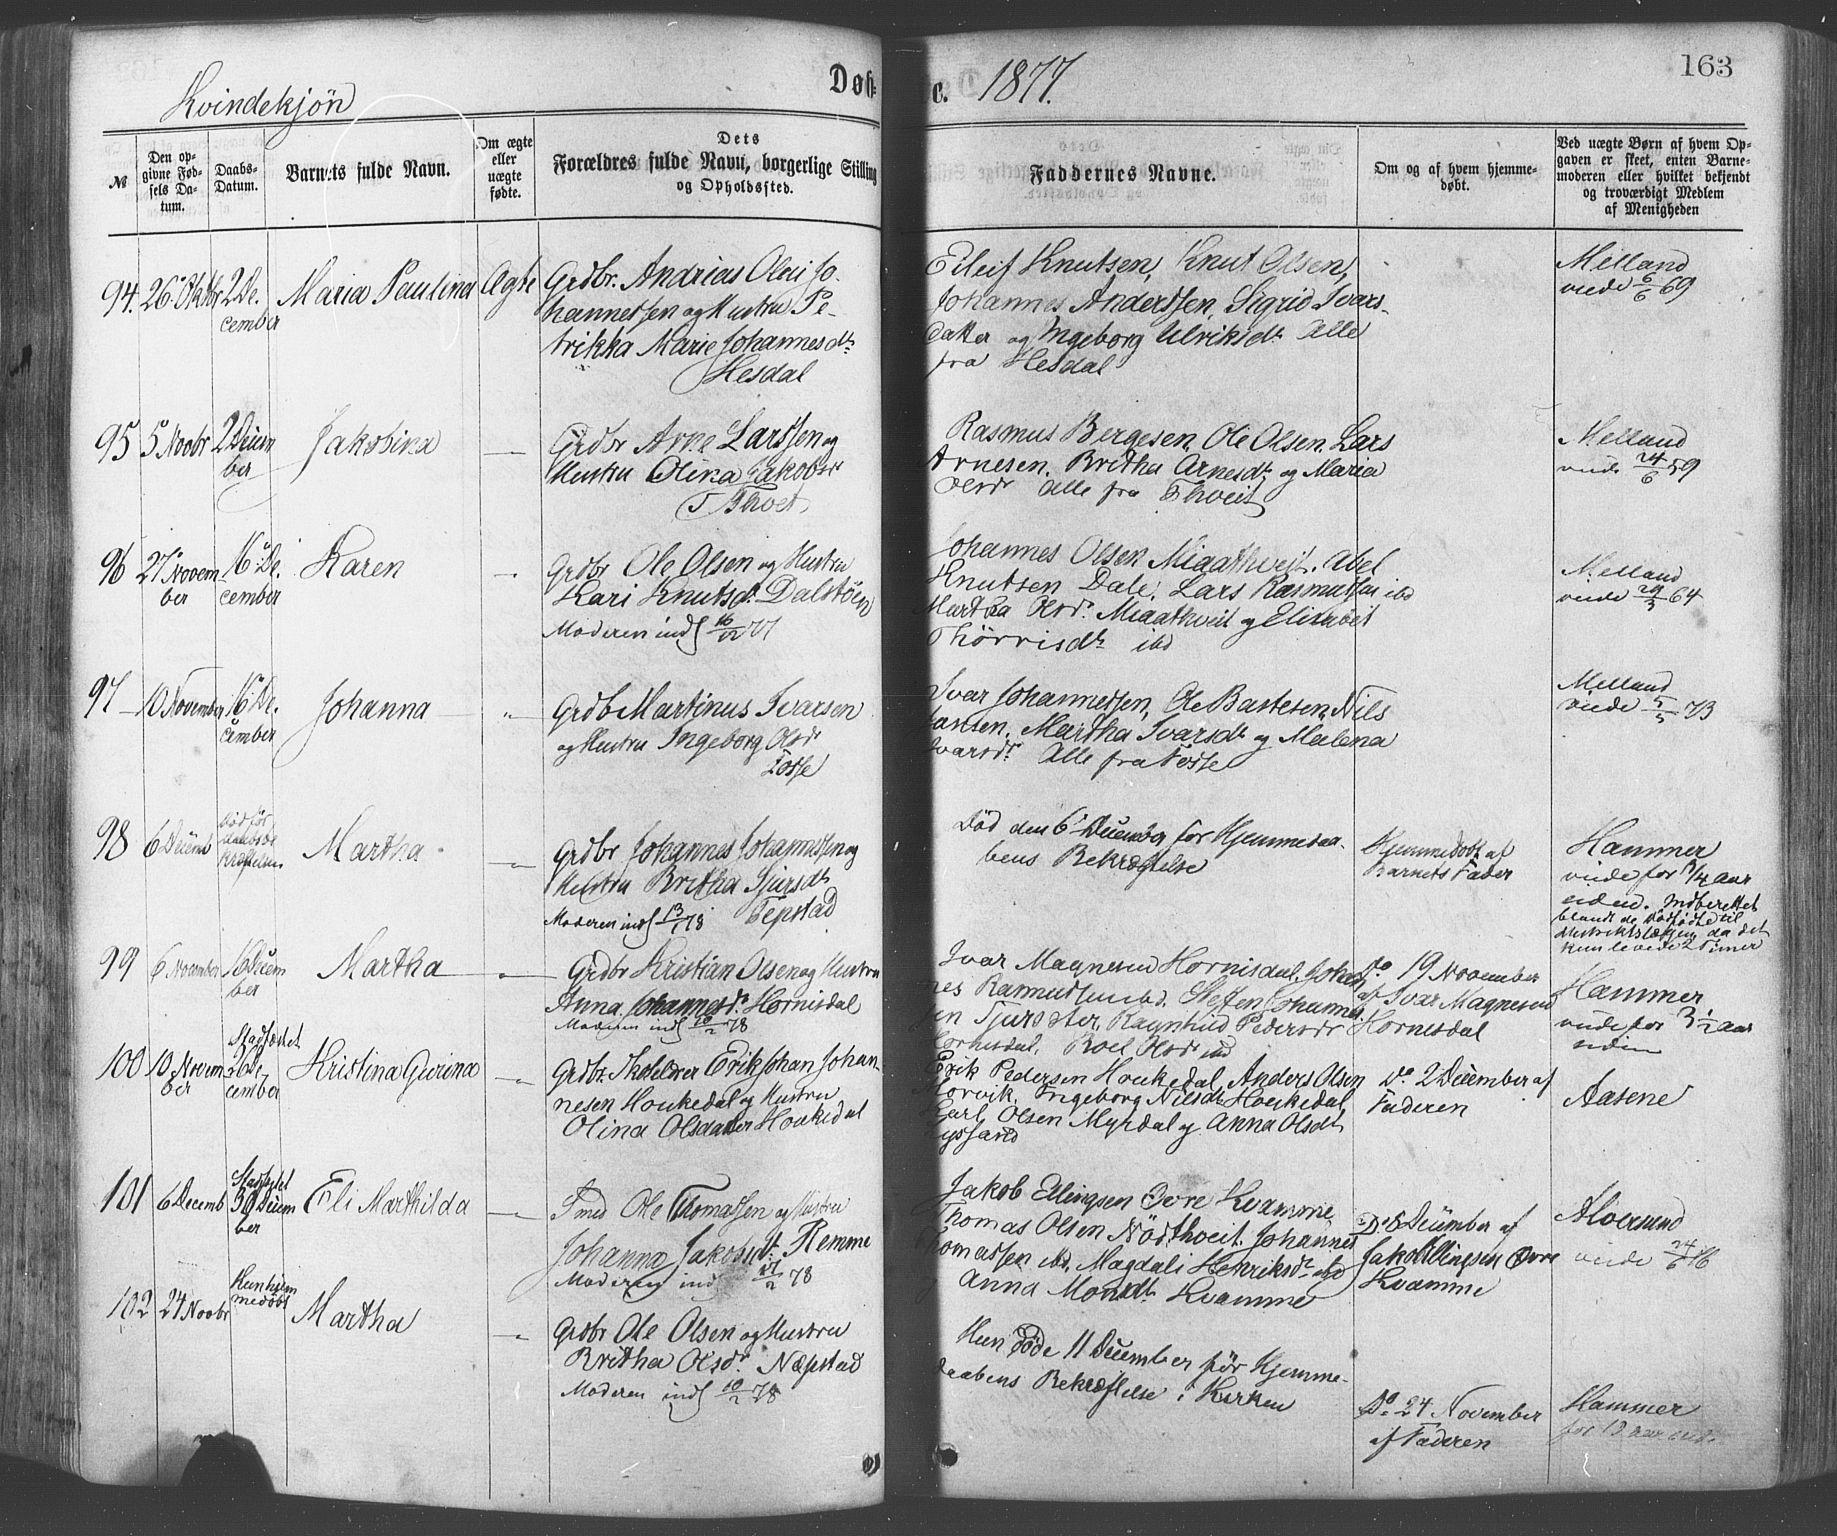 Kvindekjøn
Døb= c. 1877. 163
№
Den opgivne Fødsels Datum.
Daabs-Datum.
Barnets fulde Navn.
Om ægte eller uægte fødte.
Dets Forældres fulde Navn, borgerlige Stilling og Opholdssted.
Faddernes Navne.
Om og af hvem hjemmedøbt.
Ved uægte Børn af hvem Opgaven er skeet, enten Barnemoderen eller hvilket bekjendt og troværdigt Medlem af Menigheden
94. 26 Oktbr 2 De-
cember
Maria Paulina
Ægte
Grdbr. Andrias Olai Jo-
hannessen og Hustru Pe-
trikka Marie Johannesdt
Hesdal
Eilif Knutsen, Knut Olsen,
Johannes Anderssen, Sigrid Ivars-
datter og Ingeborg Ulriksdt Alle
fra Hesdal
Melland
viede 6/6 69
95 5 Novbr 2 Decem
ber
Jakobina
Grdbr Arne Larssen og
Hustru Olina Jakobsdr
Rasmus Bergesen, Ole Olsen, Lars
Arnesen, Britha Arnesdt og Maria
Olsdr alle fra Thveit
Melland
viede 24/6 59
96 27 Novem
ber
16 De-
cember
Karen
Grdbr Ole Olsen og Hustru
Kari Knutsdr. Dalstöen
Moderen inds 16/12 77
Johannes Olsen Miaathveit. Abel
Knutsen Dale, Lars Rasmussen ibd
Martha Olsdr. Miaathveit og Elisabet
Thörrisdt ibd
Melland
viede 29/3 64
97 10 November 16 De-
cember
Johanna
Grdb Martinus Ivarsen
og Hustru Ingeborg Olsdr
Fosse
Ivar Johannessen, Ole Bastesen, Nils
Martha Ivarsdt og Malena
Ivarsdr. Alle fra Fosse
Melland
viede 73
98 6 Decemb
död för
Martha
Grdbr Johannes Johannessen og
Hustru Britha Sjursdt
Moderen inds 13/1 78
Död den 6 December för Hjemmedaa-
bens Bekræftelse
Hjemmedöbt af
Barnets Fader
Hammer
viede for 1 1/4 Aar
siden. Indberettet
blandt de Dödfödte til
Distriktslægen da det
kun levede 2 Timer
99 6 November 16 Decem
ber
Martha
Grdbr Kristian Olsen og Hustru
Anna Johannesdr. Hornisdal
Moderen inds 10/2 78
Ivar Magnesen Hornisdal, Johan
nes Rasmussen ibd. Steffen Johannes
Ragnhild Pedersdr
Hornisdal. Olsdr ibd
Do 19 November
af Ivar Magnesen
Hornesdal
Hammer
viede for 3 1/2 Aar
siden
100 10 Novem
ber
Stadfæstet
26 De-
cember
Kristina Gurina
Grdbr. Skoleholder Erik Johan Johan-
nesen Houkedal og Hustru
Olina Olsdatter Houkedal
Erik Pedersen Houkedal, Anders Olsen
Horvik, Ingeborg Nilsdt Houkedal,
Karl Olsen Myrdal og Anna Olsdt
Do 2 December af
Faderen
Aasene
101 6 Decemb
Stadfæstet
30 Decem
ber
Eli Marthilda
Smed Ole Thomassen og Hustru
Johanna Jakobsdt. Remme
Moderen ind 17/2 78
Jakob Ellingsen Övre Kvamme
Thomas Olsen Nödthveit, Johannes
Thomassen ibd. Magdali Henriksdr ibd
og Anna Monsdt Kvamme
Do 8 December af
Jakob Ellingsen Övre
Kvamme
Alversund
viede 24/6 76
102 24 Novbr
Kun hjem
medöbt
Martha
Grdbr Ole Olsen og Hustru
Britha Olsdr. Næpstad
Moderen inds 10/2 78
Hun döde 11 December för Hjemme-
daabens Bekræftelse i Kirken
Do 24 November
af Faderen
Hammer
for 13 aar sid.